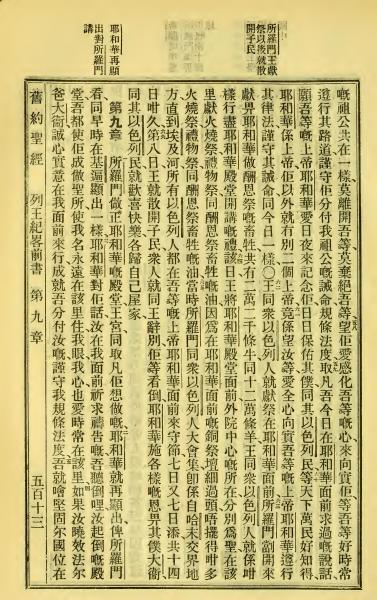 所羅門王獻
祭以後就散
開子民
耶和華再顯
出對所羅門
講
嘅祖公共在一樣莫離開吾等莫棄絕吾等望佢愛感化吾等嘅心來向實佢等吾等好時常
遵行其路道謹守佢分付我祖公嘅誡命規條法度取凡吾今日在耶和華面前求過嘅說話
願吾等嘅上帝耶和華愛日夜來紀念佢日日保佑其僕同其以色列民等天下萬民好知得
耶和華係上帝佢以外就冇別二個上帝竟係望汝等愛全心向實吾等嘅上帝耶和華遵行
其律法謹守其誡命同今日一樣〇王同衆以色列人就獻祭在耶和華面前所羅門劏開來
獻畀耶和華做酬恩祭嘅畜牲共有二萬二千條牛同十二萬條羊王同衆以色列人就係咁
樣行盡耶和華殿堂開講嘅禮該日王將耶和華殿堂面前外院中心嘅所在分別爲聖在該
里獻火燒祭禮物祭同酬恩祭畜牲嘅油因爲在耶和華面前嘅銅祭壇細過頭唔擺得咁多
火燒祭禮物祭同酬恩祭畜牲嘅油當時所羅門同衆以色列人大會集卽係自哈末交界地
方直到埃及河所有以色列人都在吾等嘅上帝耶和華面前來守節七日又七日添共十四
日咁久第八日王就散開子民衆人就同王辭別佢等看倒耶和華施各樣嘅恩畀其僕大衛
同其以色列民就歡喜快樂各歸自己屋家
第九章 所羅門做正耶和華嘅殿堂王宮同取凡佢想做嘅耶和華就再顯出俾所羅門
看同早時在基遍顯出一樣耶和華對佢話汝在我面前祈求禱告嘅吾聽倒哩汝起倒嘅殿
堂吾都使佢成做聖所使我名永遠在該里住我眼我心也愛時常在該里如果汝曉效法尔
爸大衛誠心實意在我面前來行成就吾分付汝嘅謹守我規條法度吾就噲堅固尔國位在
舊約聖經 列王紀畧前書 第九章 五百十三